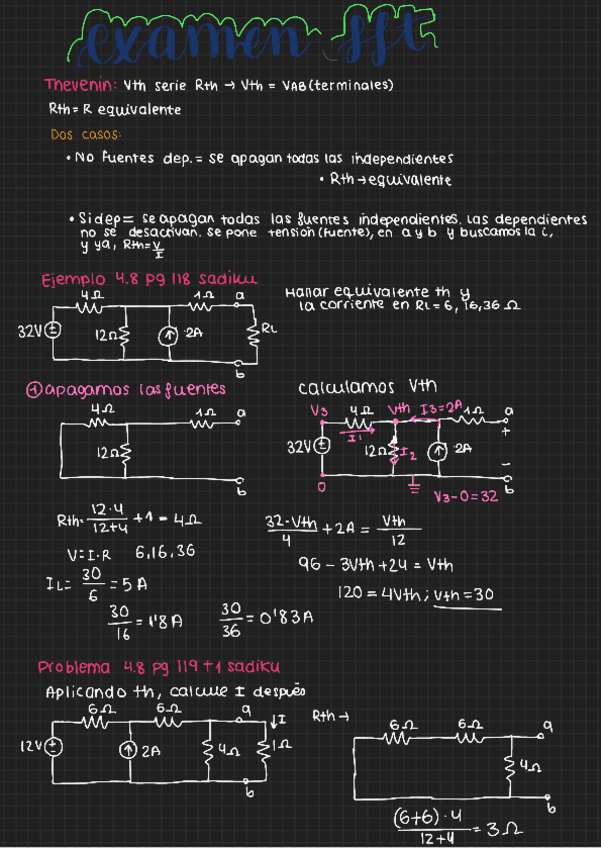 examen fft
Thevenin: Vth serie Rth → Vth = VAB (terminales)
Rth = R equivalente
Dos casos:
• No fuentes dep. = se apagan todas las independientes
• Rth → equivalente
• Si dep = se apagan todas las fuentes independientes. Las dependientes
no se desactivan. Se pone tension (fuente), en a y b y buscamos la i,
y ya, Rth = V/I
Ejemplo 4.8 pg 118 sadiku
Hallar equivalente th y
la corriente en RL = 6, 16, 36 Ω
4Ω 1Ω a
32V 12Ω 2A RL
b
① apagamos las fuentes
4Ω 1Ω a
12Ω
b
calculamos Vth
V3 4Ω Vth I3=2A 1Ω a
I1 +
32V 12Ω I2 2A
–
0 b
V3-0=32
Rth = 12·4/12+4 + 1 = 4Ω
V=I·R 6,16,36
IL= 30/6 = 5 A
30/16 = 1'8 A 30/36 = 0'83 A
32-Vth/4 + 2A = Vth/12
96 - 3Vth + 24 = Vth
120 = 4Vth ; Vth = 30
Problema 4.8 pg 119+1 sadiku
Aplicando th, calcule I después
6Ω 6Ω a ↓I
12V 2A 4Ω 1Ω
b
Rth →
6Ω 6Ω a
4Ω
b
(6+6)·4/12+4 = 3Ω